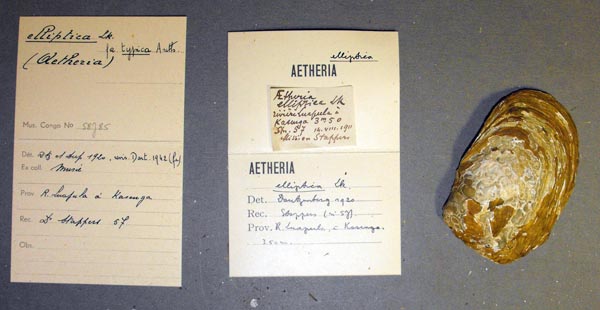 elliptica Lk.
fa typica Auth.
(Aetheria)
Mus. Congo No 58785
Dét. 1920, 1942
Ex coll. Musée
Prov. R. Luapula à Kasenga
Rec. Dr Stappers 57
Obs.
elliptica
AETHERIA
Ætheria
elliptica Lk
rivière Luapula à
Kasenga 3m50
Sta. 57 14.VIII.1911
Mission Stappers
AETHERIA
elliptica Lk.
Det. Dautzenberg 1920
Rec. Stappers (n. 57).
Prov. R. Luapula, à Kasenga.